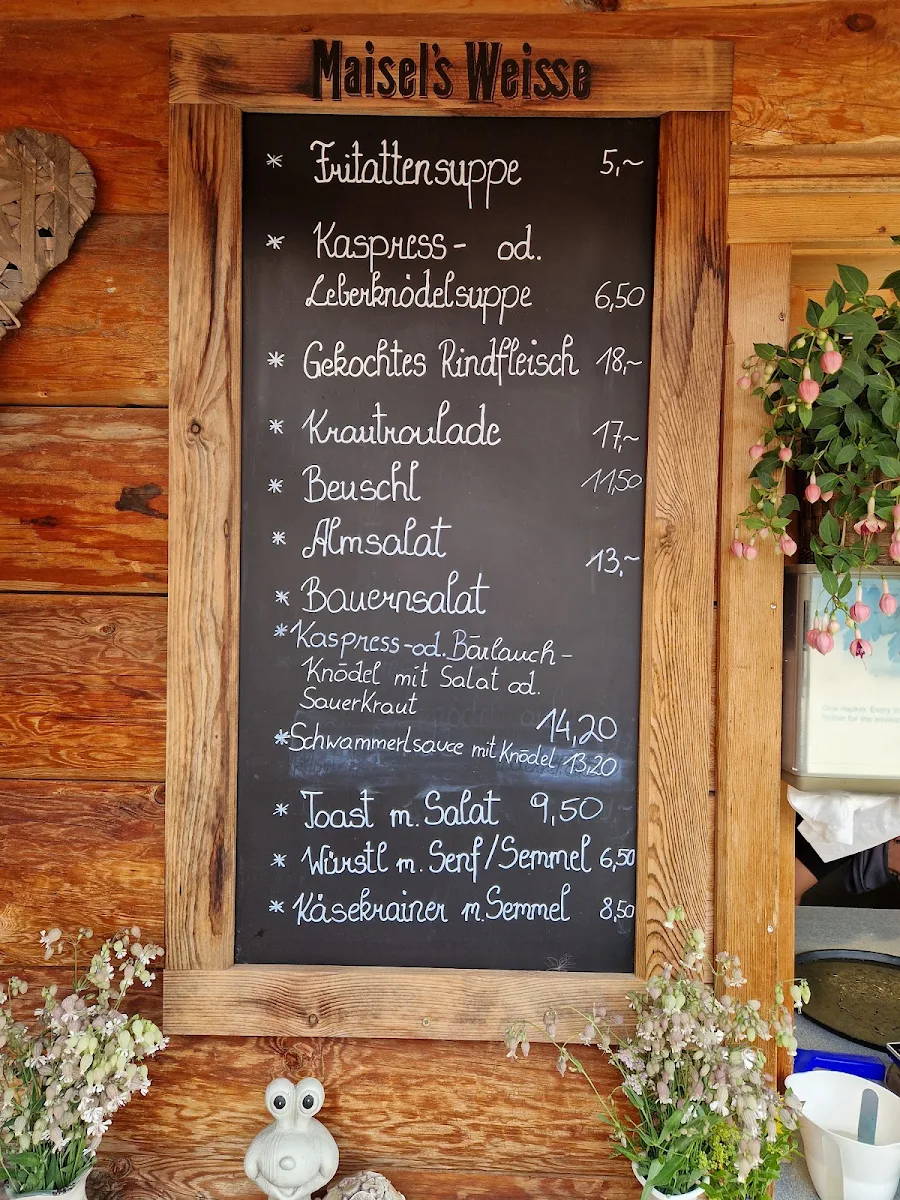 Maisel's Weisse
* Fritattensuppe 5,~
* Kaspress- od.
Leberknödelsuppe 6,50
* Gekochtes Rindfleisch 18,~
* Krautroulade 17,~
* Beuschl 11,50
* Almsalat
13,~
* Bauernsalat
* Kaspress-od. Bärlauch-
Knödel mit Salat od.
Sauerkraut
14,20
* Schwammerlsauce mit Knödel 13,20
* Toast m. Salat 9,50
* Würstl m. Senf/Semmel 6,50
* Käsekrainer m. Semmel 8,50